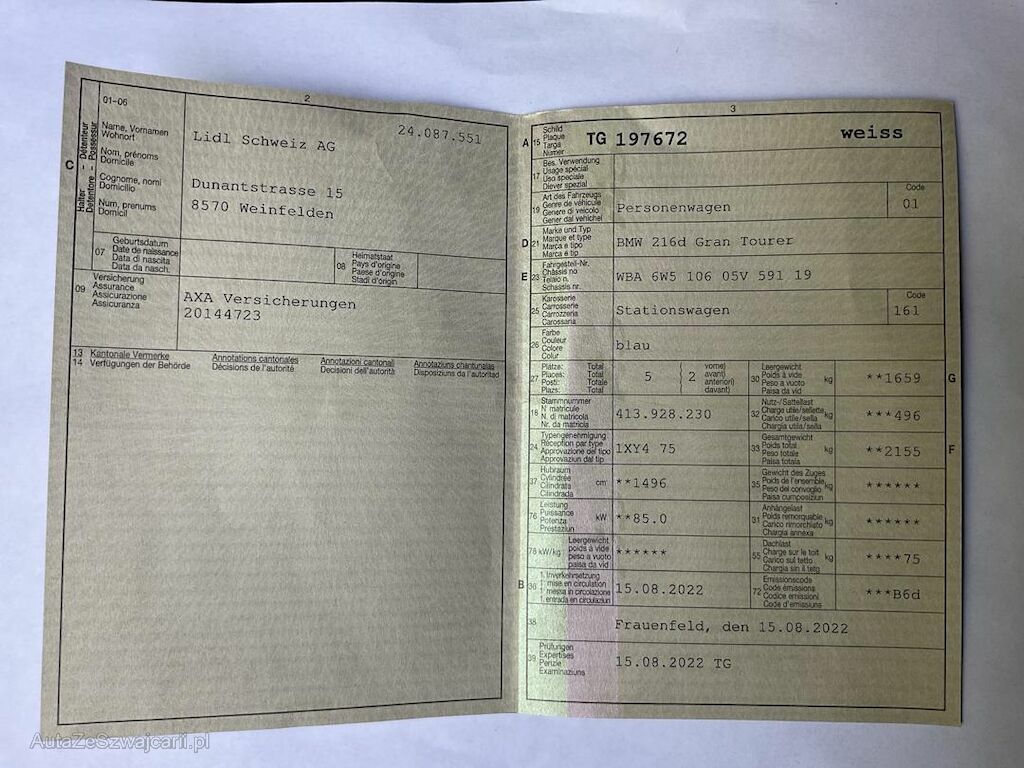 2
01-06
Name, Vornamen
Wohnort
Nom, prénoms
Domicile
Cognome, nomi
Domicilio
Num, prenums
Domicil
C
Halter - Détenteur
Detentore - Possessur
24.087.551
Lidl Schweiz AG
Dunantstrasse 15
8570 Weinfelden
07
Geburtsdatum
Date de naissance
Data di nascita
Data da nasch.
08
Heimatstaat
Pays d'origine
Paese d'origine
Stadi d'origin
09
Versicherung
Assurance
Assicurazione
Assicuranza
AXA Versicherungen
20144723
13 Kantonale Vermerke
14 Verfügungen der Behörde
Annotations cantonales
Décisions de l'autorité
Annotazioni cantonali
Decisioni dell'autorità
Annotaziuns chantunalas
Disposiziuns da l'autoritad
3
A 15
Schild
Plaque
Targa
Numer
TG 197672 weiss
17
Bes. Verwendung
Usage spécial
Uso speciale
Diever spezial
19
Art des Fahrzeugs
Genre de véhicule
Genere di veicolo
Gener dal vehichel
Personenwagen
Code
01
D 21
Marke und Typ
Marque et type
Marca e tipo
Marca e tip
BMW 216d Gran Tourer
E 23
Fahrgestell-Nr.
Châssis no
Telaio n.
Schassis nr.
WBA 6W5 106 05V 591 19
25
Karosserie
Carrosserie
Carrozzeria
Carossaria
Stationswagen
Code
161
26
Farbe
Couleur
Colore
Colur
blau
27
Plätze: Total
Places: Total
Posti: Totale
Plazs: Total
5
2
vorne)
avant)
anteriori)
davant)
30
Leergewicht
Poids à vide
Peso a vuoto
Paisa da vid
kg
**1659
G
18
Stammnummer
N° matricule
N. di matricola
Nr. da matricla
413.928.230
32
Nutz-/Sattellast
Charge utile/sellette
Carico utile/sella
Chargia utila/sella
kg
***496
24
Typengenehmigung
Réception par type
Approvazione del tipo
Approvaziun dal tip
1XY4 75
33
Gesamtgewicht
Poids total
Peso totale
Paisa totala
kg
**2155
F
37
Hubraum
Cylindrée
Cilindrata
Cilindrada
cm
**1496
35
Gewicht des Zuges
Poids de l'ensemble
Peso del convoglio
Paisa cumposiziun
kg
******
76
Leistung
Puissance
Potenza
Prestaziun
kW
**85.0
31
Anhängelast
Poids remorquable
Carico rimorchiato
Chargia annexa
kg
******
78 kW/kg
Leergewicht
poids à vide
peso a vuoto
paisa da vid
******
55
Dachlast
Charge sur le toit
Carico sul tetto
Chargia sin il tetg
kg
****75
B 36
1. Inverkehrsetzung
1re mise en circulation
1a messa in circolazione
1. entrada en circulaziun
15.08.2022
72
Emissionscode
Code émissions
Codice emissioni
Code d'emissiuns
***B6d
38
Frauenfeld, den 15.08.2022
39
Prüfungen
Expertises
Perizie
Examinaziuns
15.08.2022 TG
AutaZeSzwajcarii.pl